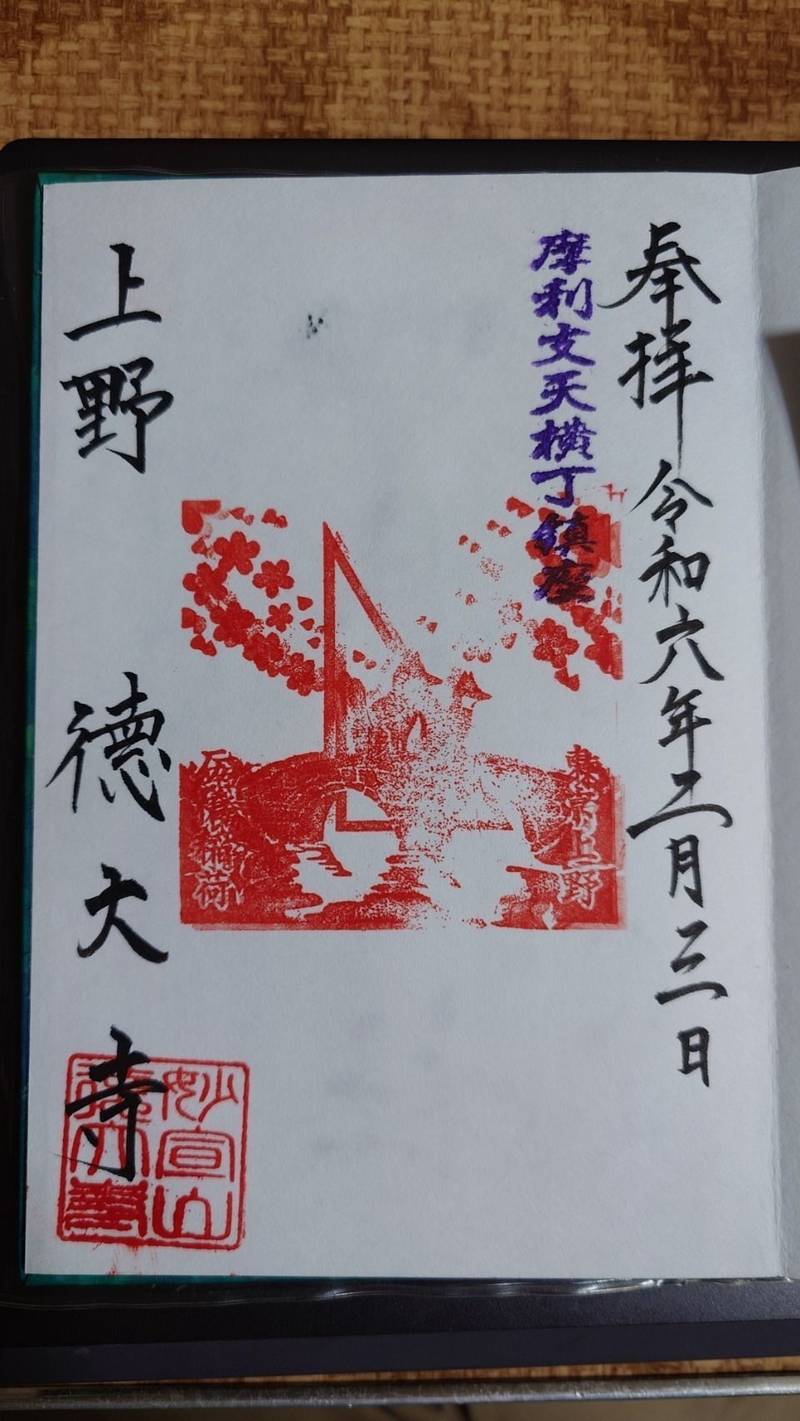 奉拝 令和六年二月三日
摩利支天横丁鎮座
東京上野
稲荷
上野 徳大寺
妙宣山
徳大寺